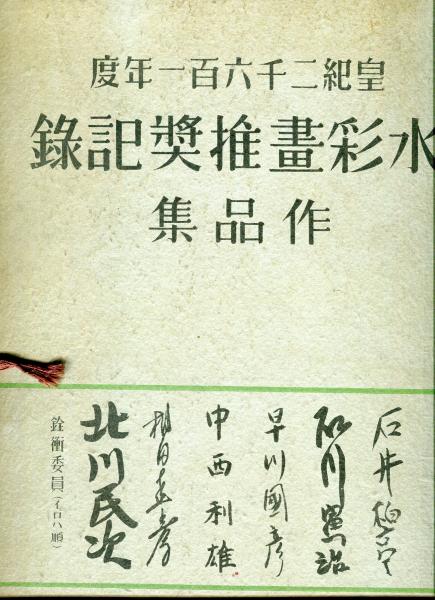 皇紀二千六百一年度
水彩畫推奬記錄
作品集
石井柏亭
石川寅治
早川國彥
中西利雄
相田直彥
北川民次
銓衡委員(イロハ順)